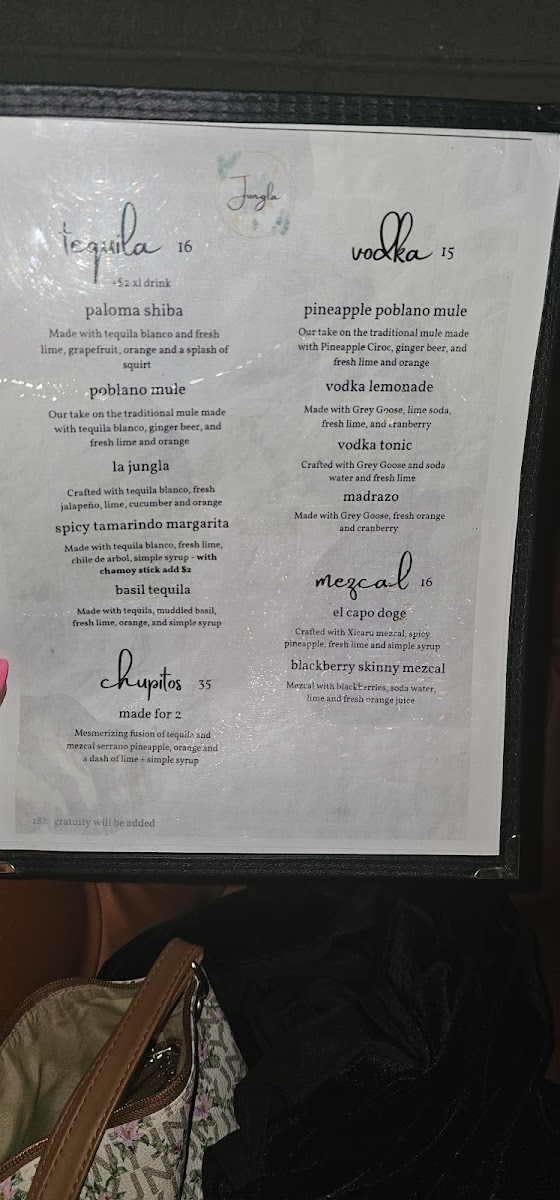 Jungla
tequila 16
+$2 xl drink
paloma shiba
Made with tequila blanco and fresh
lime, grapefruit, orange and a splash of
squirt
poblano mule
Our take on the traditional mule made
with tequila blanco, ginger beer, and
fresh lime and orange
la jungla
Crafted with tequila blanco, fresh
jalapeño, lime, cucumber and orange
spicy tamarindo margarita
Made with tequila blanco, fresh lime,
chile de arbol, simple syrup - with
chamoy stick add $2
basil tequila
Made with tequila, muddled basil,
fresh lime, orange, and simple syrup
chupitos 35
made for 2
Mesmerizing fusion of tequila and
mezcal serrano pineapple, orange and
a dash of lime + simple syrup
18% gratuity will be added
vodka 15
pineapple poblano mule
Our take on the traditional mule made
with Pineapple Ciroc, ginger beer, and
fresh lime and orange
vodka lemonade
Made with Grey Goose, lime soda,
fresh lime, and cranberry
vodka tonic
Crafted with Grey Goose and soda
water and fresh lime
madrazo
Made with Grey Goose, fresh orange
and cranberry
mezcal 16
el capo doge
Crafted with Xicaru mezcal, spicy
pineapple, fresh lime and simple syrup
blackberry skinny mezcal
Mezcal with blackberries, soda water,
lime and fresh orange juice